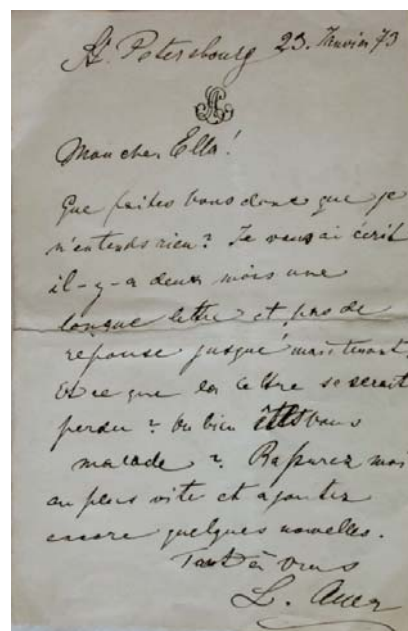 St. Petersbourg 23. Janvier 73
Mon cher Ella!
Que faites vous donc que je
n'entends rien? Je vous ai écrit
il-y-a deux mois une
longue lettre et pas de
réponse jusque' maintenant,
Est ce que la lettre se serait
perdu? Ou bien êtes vous
malade? Rassurez moi
au plus vite et ajoutez
encore quelques nouvelles.
Tout à vous
L. Auer